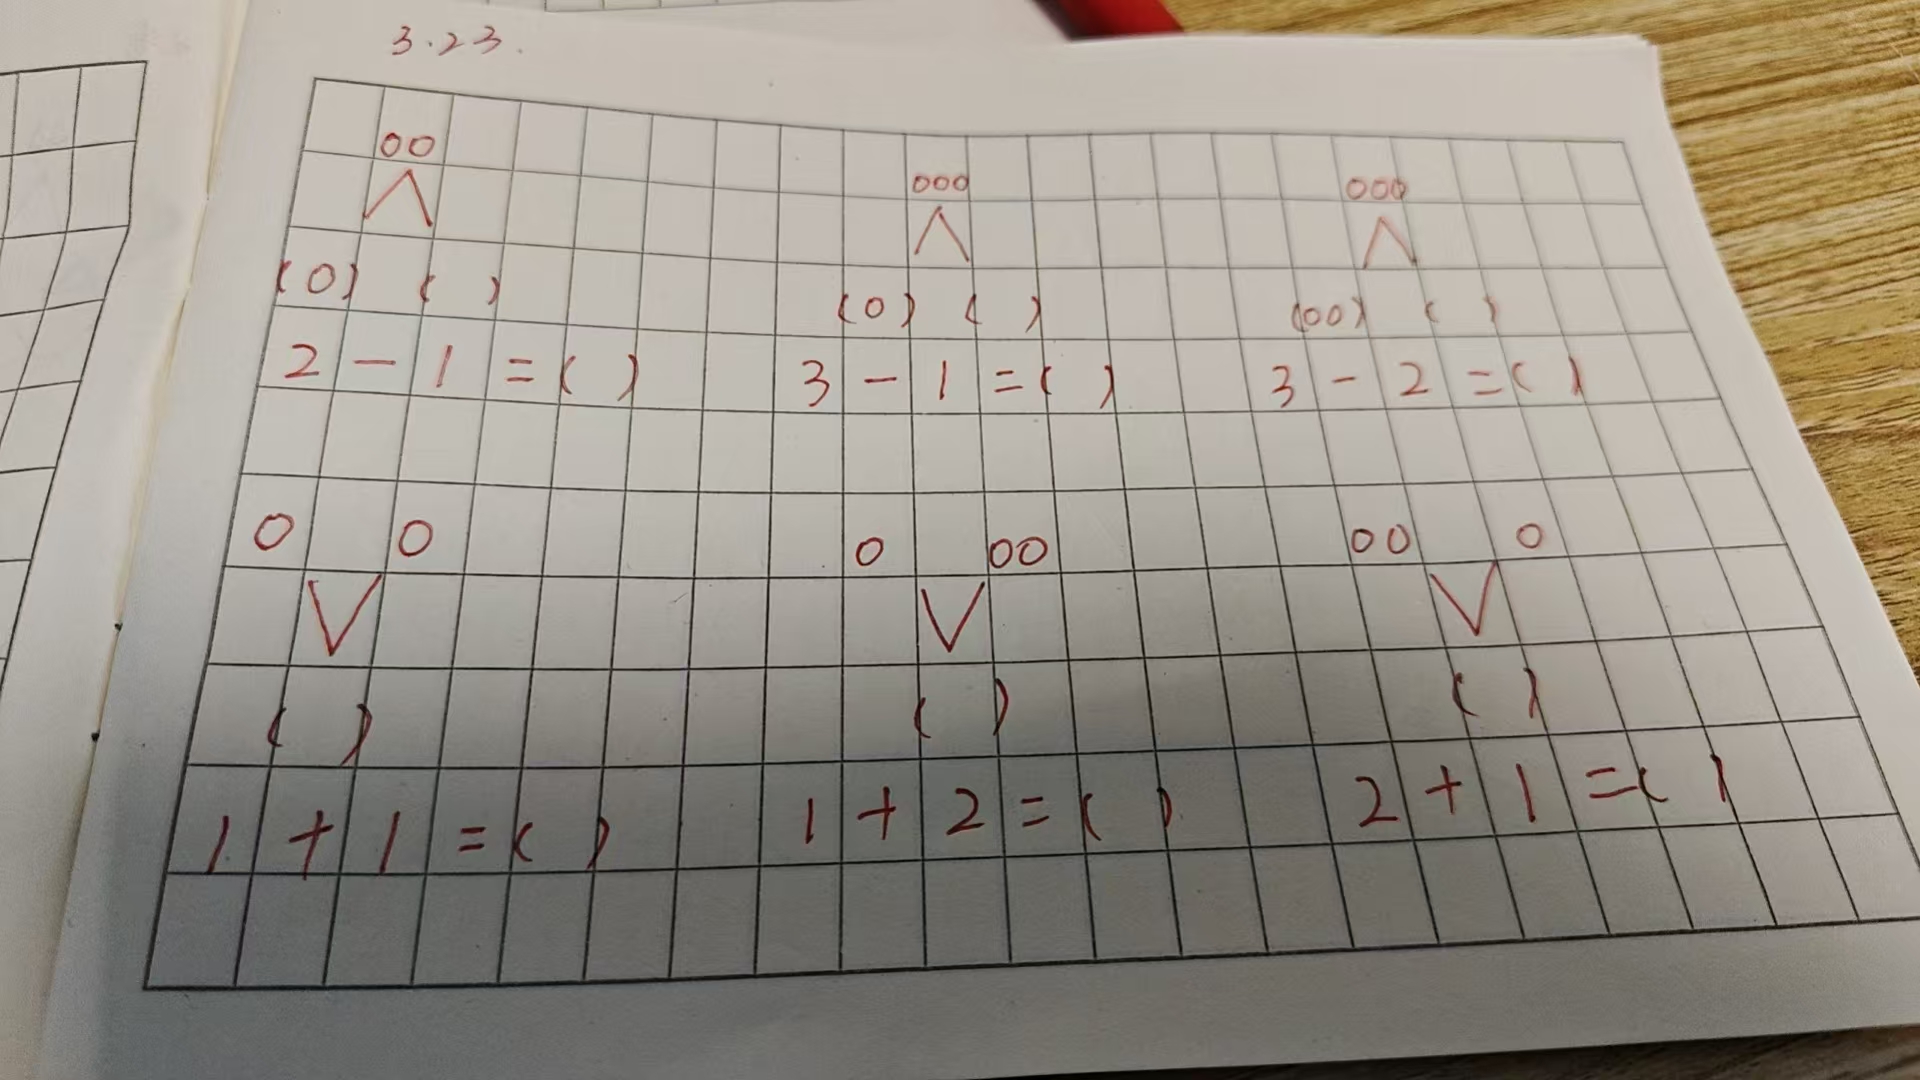 3.23.
00 000 000
∧ ∧ ∧
(0) ( ) (0) ( ) (00) ( )
2 - 1 = ( ) 3 - 1 = ( ) 3 - 2 = ( )
0 0 0 00 00 0
∨ ∨ ∨
( ) ( ) ( )
1 + 1 = ( ) 1 + 2 = ( ) 2 + 1 = ( )